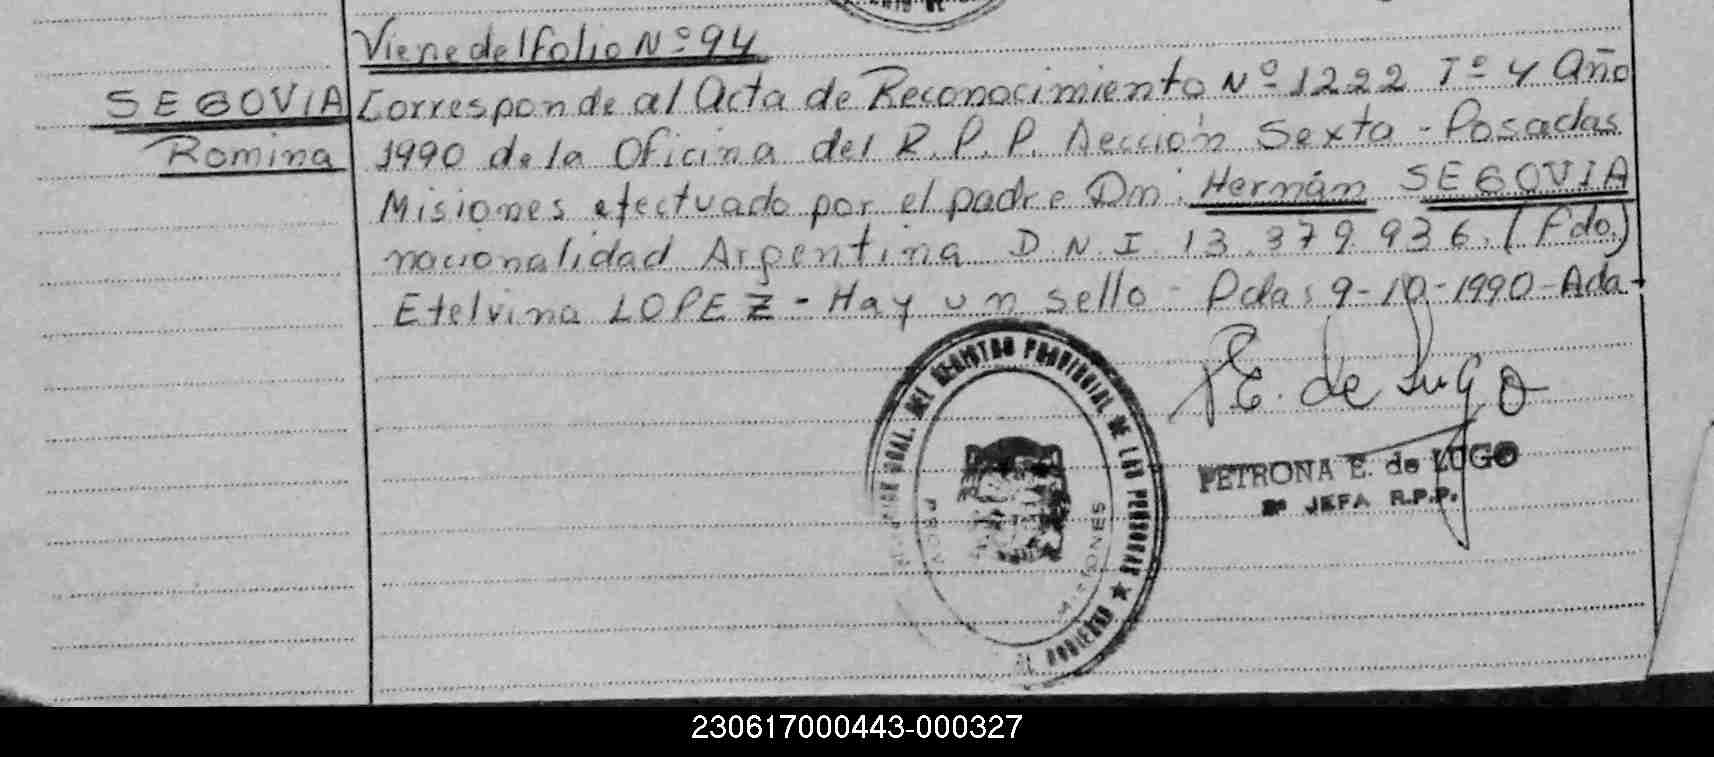 Viene del folio Nº 94
SEGOVIA Corresponde al Acta de Reconocimiento Nº 1222 Tº 4 Año
Romina 1990 de la Oficina del R.P.P. Sección Sexta - Posadas
Misiones efectuado por el padre Dn: Hernán SEGOVIA
nacionalidad Argentina D.N.I 13.379.936. (Fdo.)
Etelvina LOPEZ - Hay un sello - Pdas: 9-10-1990 - Ada -
P.E. de Lugo
PETRONA E. de LUGO
JEFA R.P.P.
GRAL. DEL REGISTRO PROVINCIAL DE LAS PERSONAS ★
GOBIERNO
MISIONES
230617000443-000327